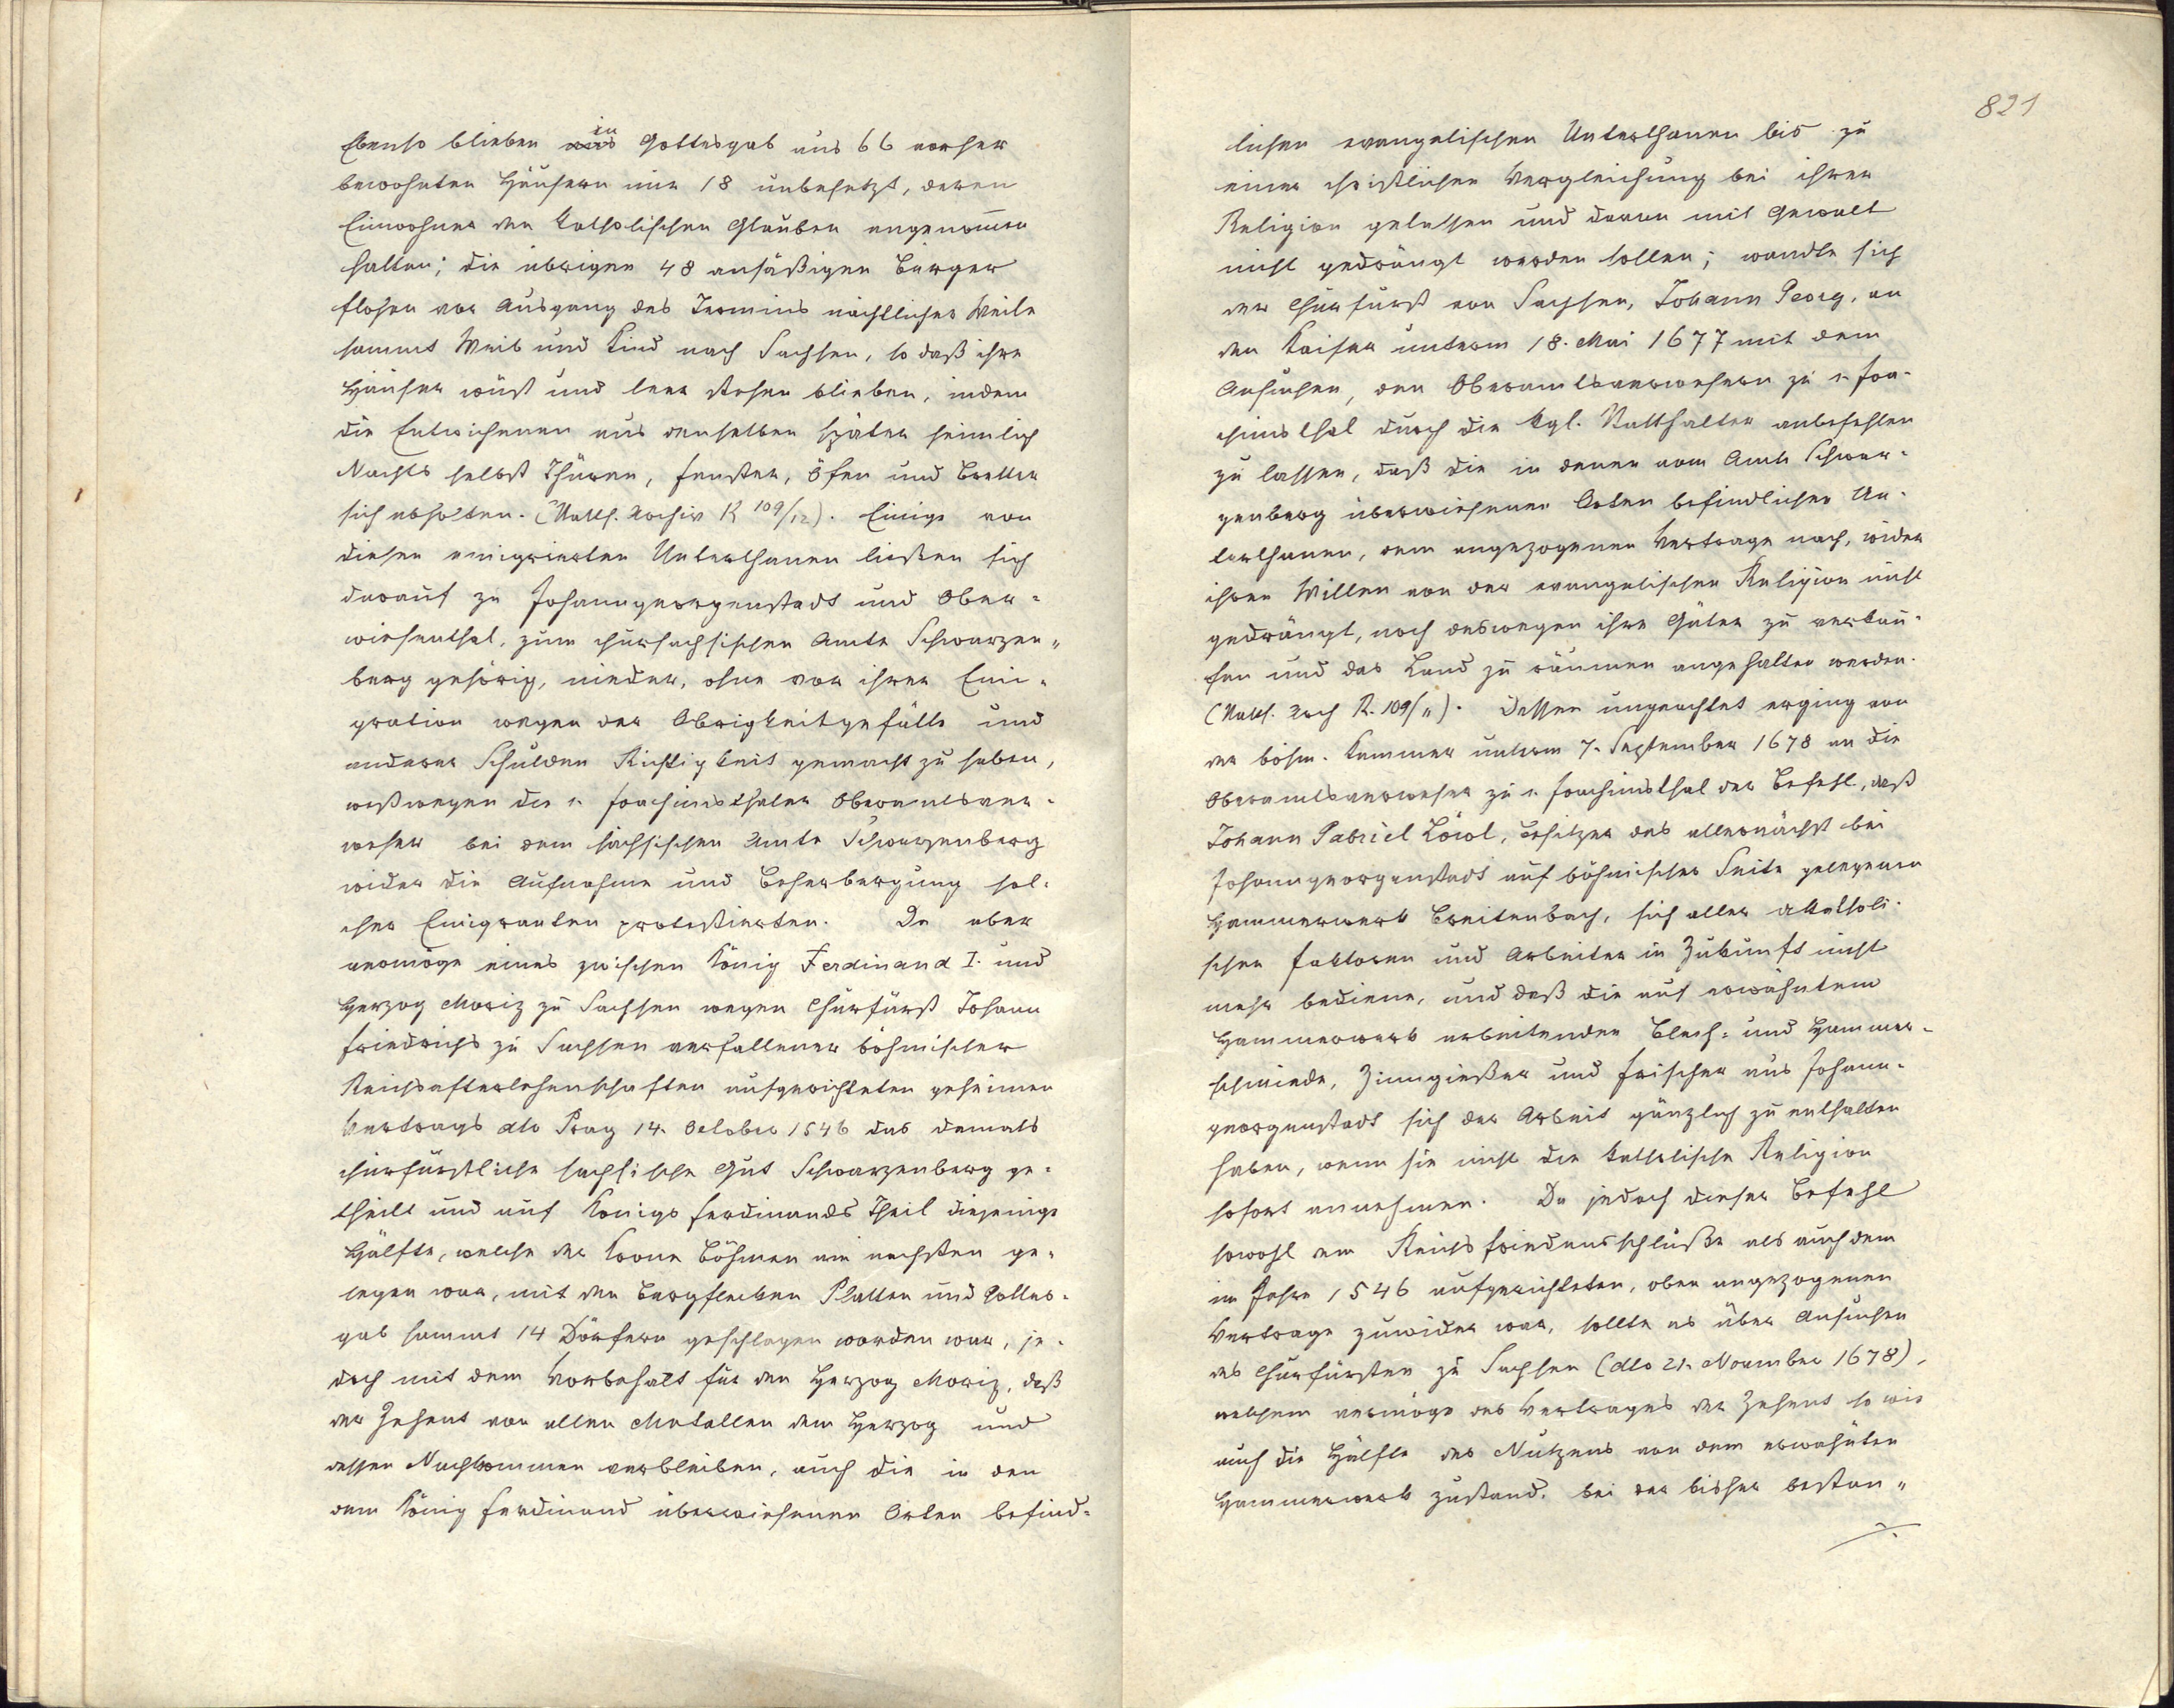 Ebenso blieben aus in Gottesgab aus 66 vorher
bewohnten Häusern nur 18 unbesetzt, deren
Einwohner den katholischen Glauben angenom̅en
hatten; die übrigen 48 ansäßigen Bürger
flohen vor Ausgang des Termins nächtlicher Weile
sammt Weib und Kind nach Sachsen, so daß ihre
Häuser wüst und leer stehen blieben, indem
die Entwichenen aus denselben später heimlich
Nachts selbst Thüren, Fenster, Öfen und Bretter
sich abholten. (Statth. Archiv R 109/12). Einige von
diesen emigrierten Unterthanen ließen sich
darauf zu Johanngeorgenstadt und Ober-
wiesenthal, zum chursachsischen Amte Schwarzen„
berg gehörig, nieder, ohne vor ihrer Emi-
gration wegen der Obrigkeitgefälle und
anderer Schulden Richtigkeit gemacht zu haben,
weßwegen die s. Joachimsthaler Oberamtsver-
weser bei dem sächsischen Amte Schwarzenberg
wider die Aufnahme und Beherbergung sol-
cher Emigranten protestierten. Da aber
vermöge eines zwischen König Ferdinand I. und
Herzog Moriz zu Sachsen wegen Churfürst Johann
Friedrichs zu Sachsen verfallener böhmischer
Reichsafterlehenschaften aufgerichteten geheimen
Vertrags dto Prag 14. October 1546 das damals
churfürstliche sachsische Gut Schwarzenberg ge-
theilt und auf Königs Ferdinands Theil diejenige
Hälfte, welche der Krone Böhmen am nechsten ge-
legen war, mit den Bergflecken Platten und Gottes-
gab sammt 14 Dörfern geschlagen worden war, je-
doch mit dem Vorbehalt für den Herzog Moriz, daß
der Zehent von allen Metallen dem Herzog und
dessen Nachkommen verbleiben, auch die in den
dem König Ferdinand überwiesenen Orten befind-
821
lichen evangelischen Unterthanen bis zu
einer christlichen Vergleichung bei ihrer
Religion gelassen und davon mit Gewalt
nicht gedrängt werden sollen; wandte sich
der Churfürst von Sachsen, Johann Georg, an
den Kaiser unterm 18. Mai 1677 mit dem
Ansuchen, den Oberamtsverwesern zu s. Joa-
chimsthal durch die kgl. Statthalter anbefehlen
zu lassen, daß die in denen vom Amte Schwar-
zenberg überwiesenen Orten befindlichen Un-
terthanen, dem angezogenen Vertrage nach, wider
ihren Willen von der evangelischen Religion nicht
gedrängt, noch deswegen ihre Güter zu verkau-
fen und das Land zu räumen angehalten werden.
(Statth. Arch R. 109/11). Dessen ungeachtet erging von
der böhm. Kammer unterm 7. September 1678 an die
Oberamtsverweser zu s. Joachimsthal der Befehl, daß
Johann Gabriel Löwl, Besitzer des allernächst bei
Johanngeorgenstadt auf böhmischer Seite gelegenen
Hammerwerk Breitenbach, sich aller akatholi-
schen Faktoren und Arbeiter in Zukunft nicht
mehr bediene, und daß die auf erwähntem
Hammerwerk arbeitenden Blech- und Hammer-
schmiede, Zinngießer und Frischer aus Johann-
georgenstadt sich der Arbeit gänzlich zu enthalten
haben, wenn sie nicht die katholische Religion
sofort annehmen. Da jedoch dieser Befehl
sowohl dem Reichsfriedensschluße als auch dem
im Jahre 1546 aufgerichteten, oben angezogenen
Vertrage zuwider war, sollte es über Ansuchen
des Churfürsten zu Sachsen (dto 21. November 1678),
welchem vermöge des Vertrages der Zehent so wie
auch die Hälfte des Nutzens von dem erwähnten
Hammerwerk zustand, bei der bisher bestan„